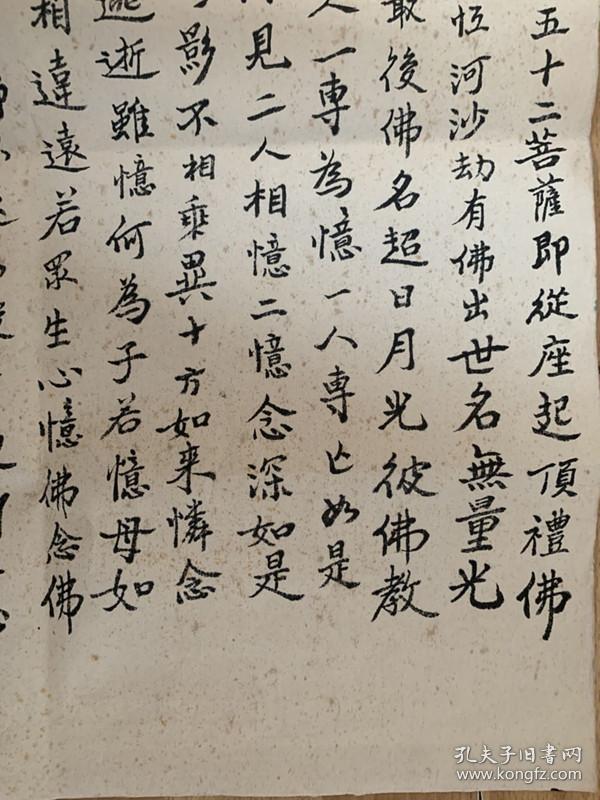 五十二菩薩即從座起頂禮佛
恆河沙劫有佛出世名無量光
最後佛名超日月光彼佛教
人一專為憶一人專亡如是
見二人相憶二憶念深如是
影不相乖異十方如来憐念
逃逝雖憶何為子若憶母如
相違遠若眾生心憶佛念佛
孔夫子旧書网
www.kongfz.com